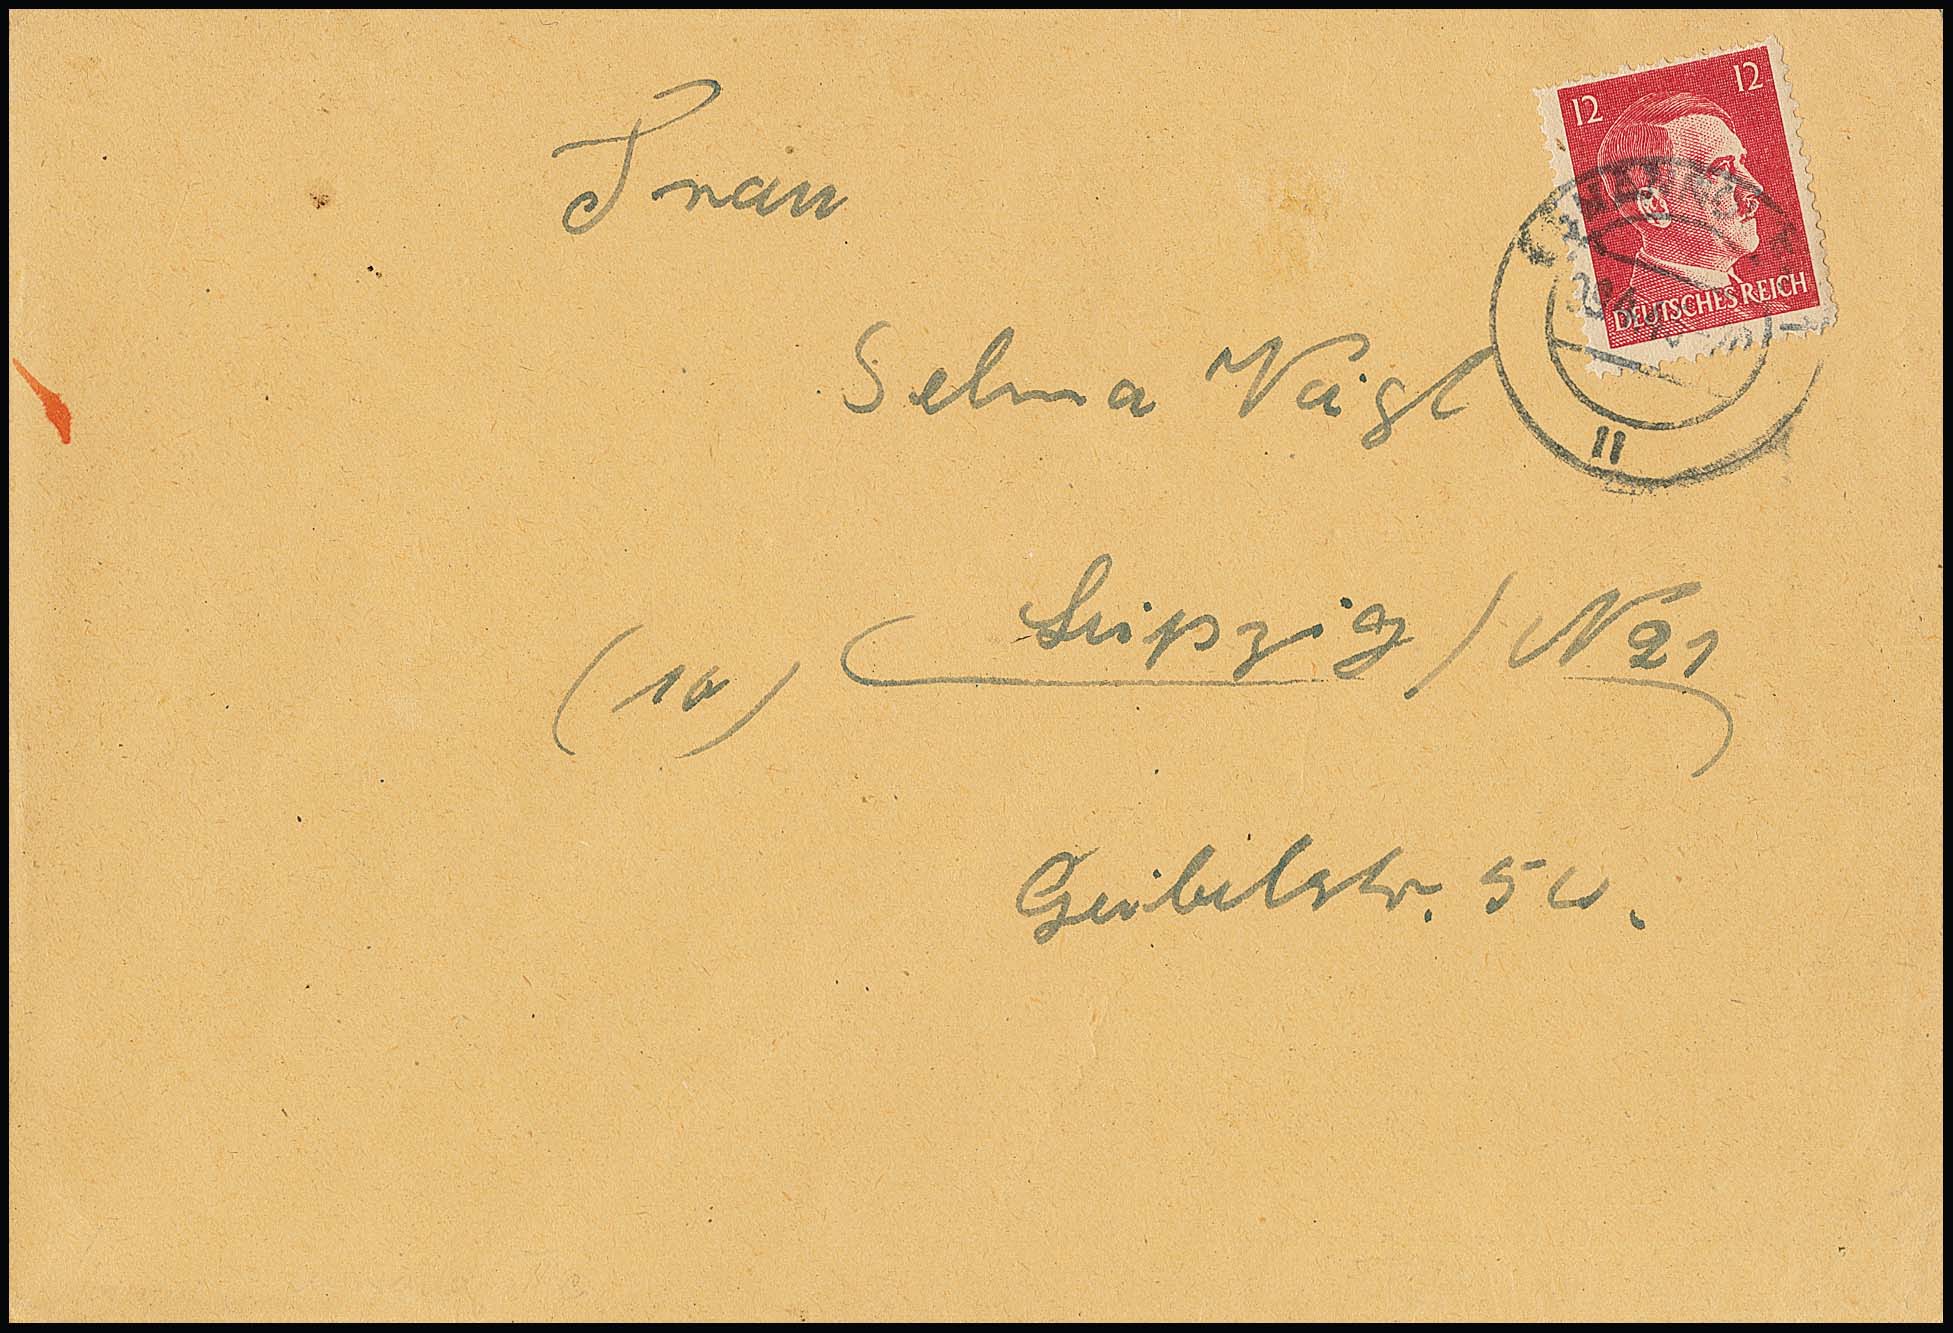 12 12
DEUTSCHES REICH
11
Frau
Selma
(10) Leipzig / N 21
Geibelstr.